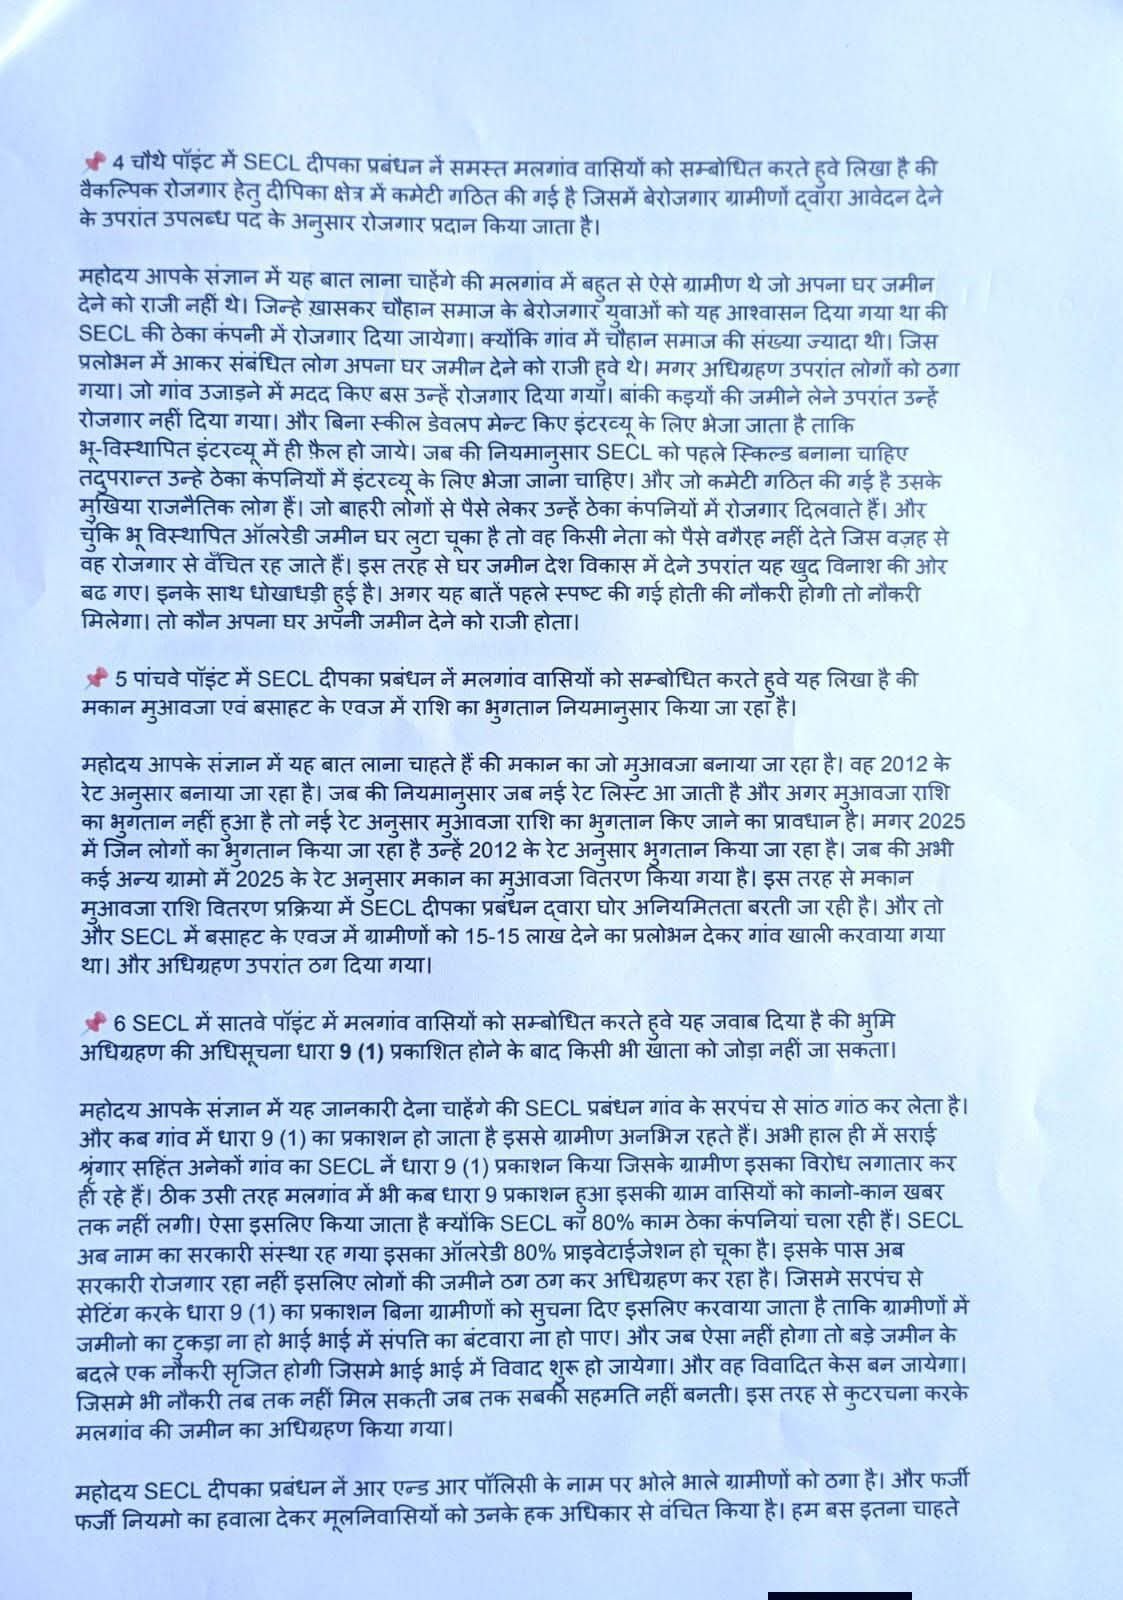 📌 4 चौथे पॉइंट में SECL दीपका प्रबंधन नें समस्त मलगांव वासियों को सम्बोधित करते हुवे लिखा है की
वैकल्पिक रोजगार हेतु दीपिका क्षेत्र में कमेटी गठित की गई है जिसमें बेरोजगार ग्रामीणों द्वारा आवेदन देने
के उपरांत उपलब्ध पद के अनुसार रोजगार प्रदान किया जाता है।
महोदय आपके संज्ञान में यह बात लाना चाहेंगे की मलगांव में बहुत से ऐसे ग्रामीण थे जो अपना घर जमीन
देने को राजी नहीं थे। जिन्हे ख़ासकर चौहान समाज के बेरोजगार युवाओं को यह आश्वासन दिया गया था की
SECL की ठेका कंपनी में रोजगार दिया जायेगा। क्योंकि गांव में चौहान समाज की संख्या ज्यादा थी। जिस
प्रलोभन में आकर संबंधित लोग अपना घर जमीन देने को राजी हुवे थे। मगर अधिग्रहण उपरांत लोगों को ठगा
गया। जो गांव उजाड़ने में मदद किए बस उन्हें रोजगार दिया गया। बांकी कइयों की जमीने लेने उपरांत उन्हें
रोजगार नहीं दिया गया। और बिना स्कील डेवलप मेन्ट किए इंटरव्यू के लिए भेजा जाता है ताकि
भू-विस्थापित इंटरव्यू में ही फ़ैल हो जाये। जब की नियमानुसार SECL को पहले स्किल्ड बनाना चाहिए
तदुपरान्त उन्हे ठेका कंपनियों में इंटरव्यू के लिए भेजा जाना चाहिए। और जो कमेटी गठित की गई है उसके
मुखिया राजनैतिक लोग हैं। जो बाहरी लोगों से पैसे लेकर उन्हें ठेका कंपनियों में रोजगार दिलवाते हैं। और
चुंकि भू विस्थापित ऑलरेडी जमीन घर लुटा चूका है तो वह किसी नेता को पैसे वगैरह नहीं देते जिस वज़ह से
वह रोजगार से वँचित रह जाते हैं। इस तरह से घर जमीन देश विकास में देने उपरांत यह खुद विनाश की ओर
बढ गए। इनके साथ धोखाधड़ी हुई है। अगर यह बातें पहले स्पष्ट की गई होती की नौकरी होगी तो नौकरी
मिलेगा। तो कौन अपना घर अपनी जमीन देने को राजी होता।
📌 5 पांचवे पॉइंट में SECL दीपका प्रबंधन नें मलगांव वासियों को सम्बोधित करते हुवे यह लिखा है की
मकान मुआवजा एवं बसाहट के एवज में राशि का भुगतान नियमानुसार किया जा रहा है।
महोदय आपके संज्ञान में यह बात लाना चाहते हैं की मकान का जो मुआवजा बनाया जा रहा है। वह 2012 के
रेट अनुसार बनाया जा रहा है। जब की नियमानुसार जब नई रेट लिस्ट आ जाती है और अगर मुआवजा राशि
का भुगतान नहीं हुआ है तो नई रेट अनुसार मुआवजा राशि का भुगतान किए जाने का प्रावधान है। मगर 2025
में जिन लोगों का भुगतान किया जा रहा है उन्हें 2012 के रेट अनुसार भुगतान किया जा रहा है। जब की अभी
कई अन्य ग्रामो में 2025 के रेट अनुसार मकान का मुआवजा वितरण किया गया है। इस तरह से मकान
मुआवजा राशि वितरण प्रक्रिया में SECL दीपका प्रबंधन द्वारा घोर अनियमितता बरती जा रही है। और तो
और SECL में बसाहट के एवज में ग्रामीणों को 15-15 लाख देने का प्रलोभन देकर गांव खाली करवाया गया
था। और अधिग्रहण उपरांत ठग दिया गया।
📌 6 SECL में सातवे पॉइंट में मलगांव वासियों को सम्बोधित करते हुवे यह जवाब दिया है की भुमि
अधिग्रहण की अधिसूचना धारा 9 (1) प्रकाशित होने के बाद किसी भी खाता को जोड़ा नहीं जा सकता।
महोदय आपके संज्ञान में यह जानकारी देना चाहेंगे की SECL प्रबंधन गांव के सरपंच से सांठ गांठ कर लेता है।
और कब गांव में धारा 9 (1) का प्रकाशन हो जाता है इससे ग्रामीण अनभिज्ञ रहते हैं। अभी हाल ही में सराई
श्रृंगार सहिंत अनेकों गांव का SECL नें धारा 9 (1) प्रकाशन किया जिसके ग्रामीण इसका विरोध लगातार कर
ही रहे हैं। ठीक उसी तरह मलगांव में भी कब धारा 9 प्रकाशन हुआ इसकी ग्राम वासियों को कानो-कान खबर
तक नहीं लगी। ऐसा इसलिए किया जाता है क्योंकि SECL का 80% काम ठेका कंपनियां चला रही हैं। SECL
अब नाम का सरकारी संस्था रह गया इसका ऑलरेडी 80% प्राइवेटाईजेशन हो चूका है। इसके पास अब
सरकारी रोजगार रहा नहीं इसलिए लोगों की जमीने ठग ठग कर अधिग्रहण कर रहा है। जिसमे सरपंच से
सेटिंग करके धारा 9 (1) का प्रकाशन बिना ग्रामीणों को सुचना दिए इसलिए करवाया जाता है ताकि ग्रामीणों में
जमीनो का टुकड़ा ना हो भाई भाई में संपति का बंटवारा ना हो पाए। और जब ऐसा नहीं होगा तो बड़े जमीन के
बदले एक नौकरी सृजित होगी जिसमे भाई भाई में विवाद शुरू हो जायेगा। और वह विवादित केस बन जायेगा।
जिसमे भी नौकरी तब तक नहीं मिल सकती जब तक सबकी सहमति नहीं बनती। इस तरह से कुटरचना करके
मलगांव की जमीन का अधिग्रहण किया गया।
महोदय SECL दीपका प्रबंधन नें आर एन्ड आर पॉलिसी के नाम पर भोले भाले ग्रामीणों को ठगा है। और फर्जी
फर्जी नियमो का हवाला देकर मूलनिवासियों को उनके हक अधिकार से वंचित किया है। हम बस इतना चाहते